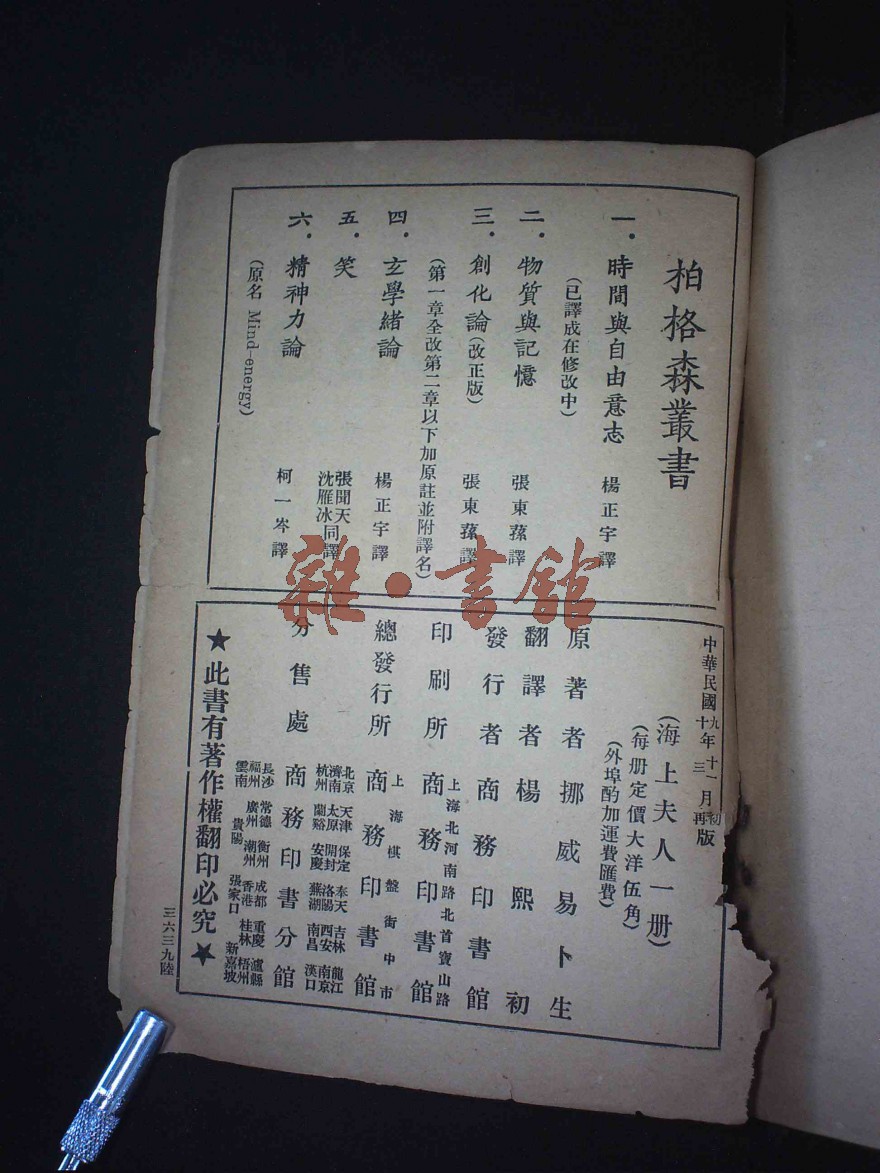 柏格森叢書
一．時間與自由意志　楊正宇譯
（已譯成在修改中）
二．物質與記憶　張東蓀譯
三．創化論（改正版）　張東蓀譯
（第一章全改第二章以下加原註並附譯名）
四．玄學緒論　楊正宇譯
五．笑　張聞天 沈雁冰同譯
六．精神力論　柯一岑譯
（原名 Mind-energy）
中華民國九年十一月初版
十年三月再版
（海上夫人一册）
（每册定價大洋伍角）
（外埠酌加運費匯費）
原著者　挪威易卜生
翻譯者　楊熙初
發行者　商務印書館
上海北河南路北首寶山路
印刷所　商務印書館
上海棋盤街中市
總發行所　商務印書館
北京 天津 保定 奉天 吉林 龍江
濟南 太原 開封 洛陽 西安 南京
杭州 蘭谿 安慶 蕪湖 南昌 漢口
分售處　商務印書分館
長沙 常德 衡州 成都 重慶 瀘縣
福州 廣州 潮州 香港 桂林 梧州
雲南 貴陽 張家口 新嘉坡
★此書有著作權翻印必究★
三六三九陸
雜·書館